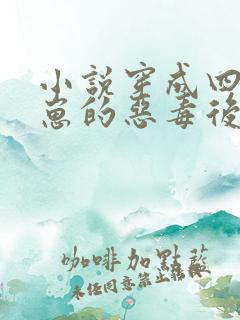 小說穿成四
崽的惡毒後
咖啡加點藍
未任同意禁止轉載